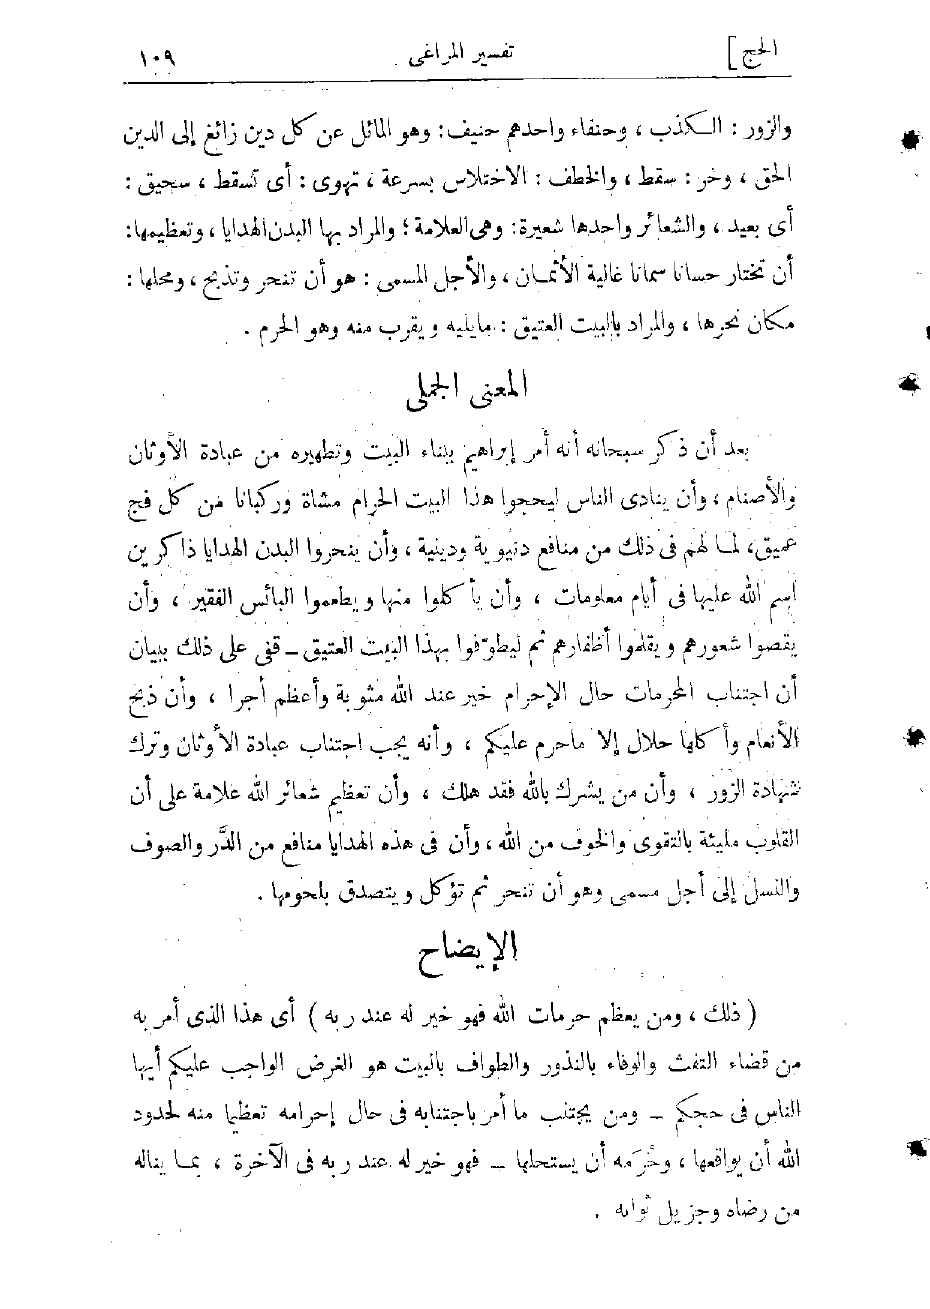 الحج] تفسير المراغى ١٠٩
والزور : الكذب ، وحنفاء واحدهم حنيف : وهو المائل عن كل دين زائغ إلى الدين
الحق ، وخر : سقط ، والخطف : الاختلاس بسرعة ، تهوى : أى تسقط ، سحيق :
أى بعيد ، والشعائر واحدها شعيرة : وهى العلامة ؛ والمراد بها البدن الهدايا ، وتعظيمها :
أن تختار حسانا سمانا غالية الأثمان ، والأجل المسمى : هو أن تنحر وتذبح ، ومحلها :
مكان نحرها ، والمراد بالبيت العتيق : مايليه ويقرب منه وهو الحرم .
المعنى الجملى
بعد أن ذكر سبحانه أنه أمر إبراهيم ببناء البيت وتطهيره من عبادة الأوثان
والأصنام ، وأن ينادى الناس ليحجوا هذا البيت الحرام مشاة وركبانا من كل فج
عميق ، لما لهم فى ذلك من منافع دنيوية ودينية ، وأن ينحروا البدن الهدايا ذاكرين
اسم الله عليها فى أيام معلومات ، وأن يأكلوا منها ويطعموا البائس الفقير ، وأن
يقصوا شعورهم ويقلموا أظفارهم ثم ليطوّفوا بهذا البيت العتيق – قفى على ذلك ببيان
أن اجتناب المحرمات حال الإحرام خير عند الله مثوبة وأعظم أجرا ، وأن ذبح
الأنعام وأكلها حلال إلا ماحرم عليكم ، وأنه يجب اجتناب عبادة الأوثان وترك
شهادة الزور ، وأن من يشرك بالله فقد هلك ، وأن تعظيم شعائر الله علامة على أن
القلوب مليئة بالتقوى والخوف من الله ، وأن فى هذه الهدايا منافع من الدَّر والصوف
والنسل إلى أجل مسمى وهو أن تنحر ثم تؤكل ويتصدق بلحومها .
الإيضاح
( ذلك ، ومن يعظم حرمات الله فهو خير له عند ربه ) أى هذا الذى أمر به
من قضاء التفث والوفاء بالنذور والطواف بالبيت هو الفرض الواجب عليكم أيها
الناس فى حجكم – ومن يجتنب ما أمر باجتنابه فى حال إحرامه تعظيما منه لحدود
الله أن يواقعها ، وحُرَمه أن يستحلها – فهو خير له عند ربه فى الآخرة ، بما يناله
من رضاه وجزيل ثوابه .